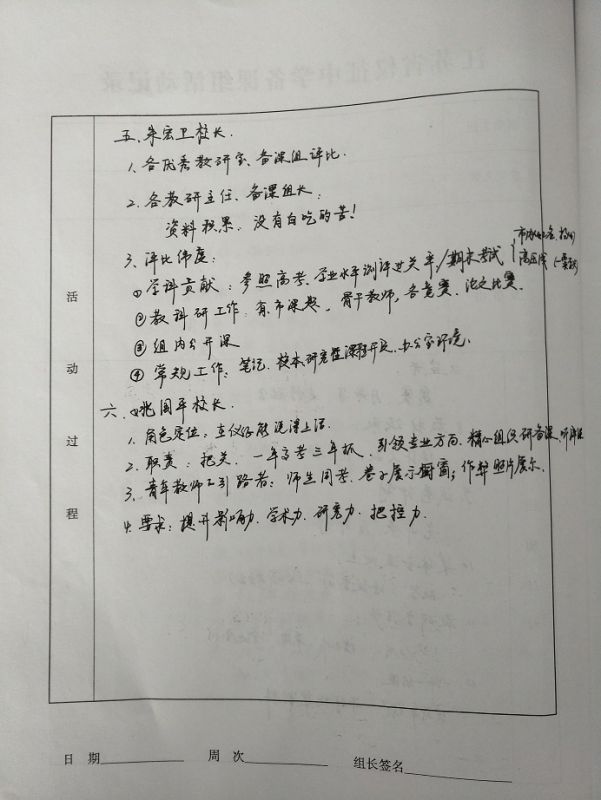 五、朱宏卫校长.
1. 各优秀教研室、备课组评比.
2. 各教研主任、备课组长:
资料积累, 没有白吃的苦!
3. 评比伟度:
①学科贡献: 参照高考、学业水平测评过关率/期末考试
②教科研工作: 有市课题, 骨干教师, 各竞赛、论文比赛.
③组内公开课
④常规工作: 笔记、校本研究性课程开足、办公室环境.
六、姚国平校长.
1. 角色定位:
2. 职责: 把关, 一年高考三年抓, 引领专业方向, 精心组织研备课,
3. 青年教师的引路者: 师生同考、卷子展示橱窗; 作弊照片展示.
4. 要求: 提升影响力、学术力、研究力、把控力.
活
动
过
程
日 期 周 次 组长签名